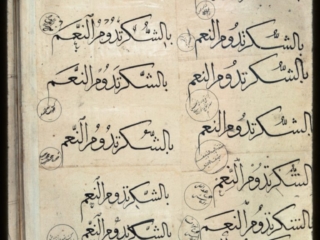 بالشكر تدوم النعم
بالشكر تدوم النعم
بالشكر تدوم النعم
بالشكر تدوم النعم
بالشكر تدوم النعم
بالشكر تدوم النعم
بالشكر تدوم النعم
بالشكر تدوم النعم
بالشكر تدوم النعم
بالشكر تدوم النعم